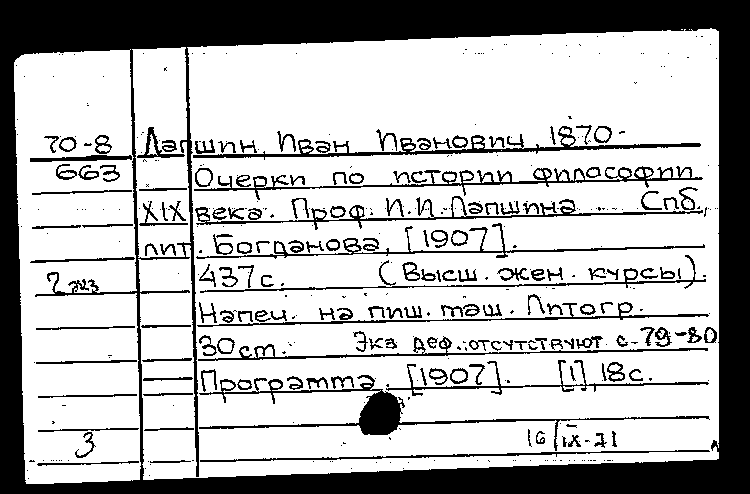 70-8 Лапшин, Иван Иванович, 1870-
663 Очерки по истории философии
XIX века. Проф. И.И. Лапшина. Спб.,
лит. Богданова, [1907].
2 экз 437с. (Высш. жен. курсы).
Напеч. на пиш. маш. Литогр.
30см. Экз деф.: отсутствуют с. 79-80
Программа. [1907]. [1], 18с.
3 16/IX-71